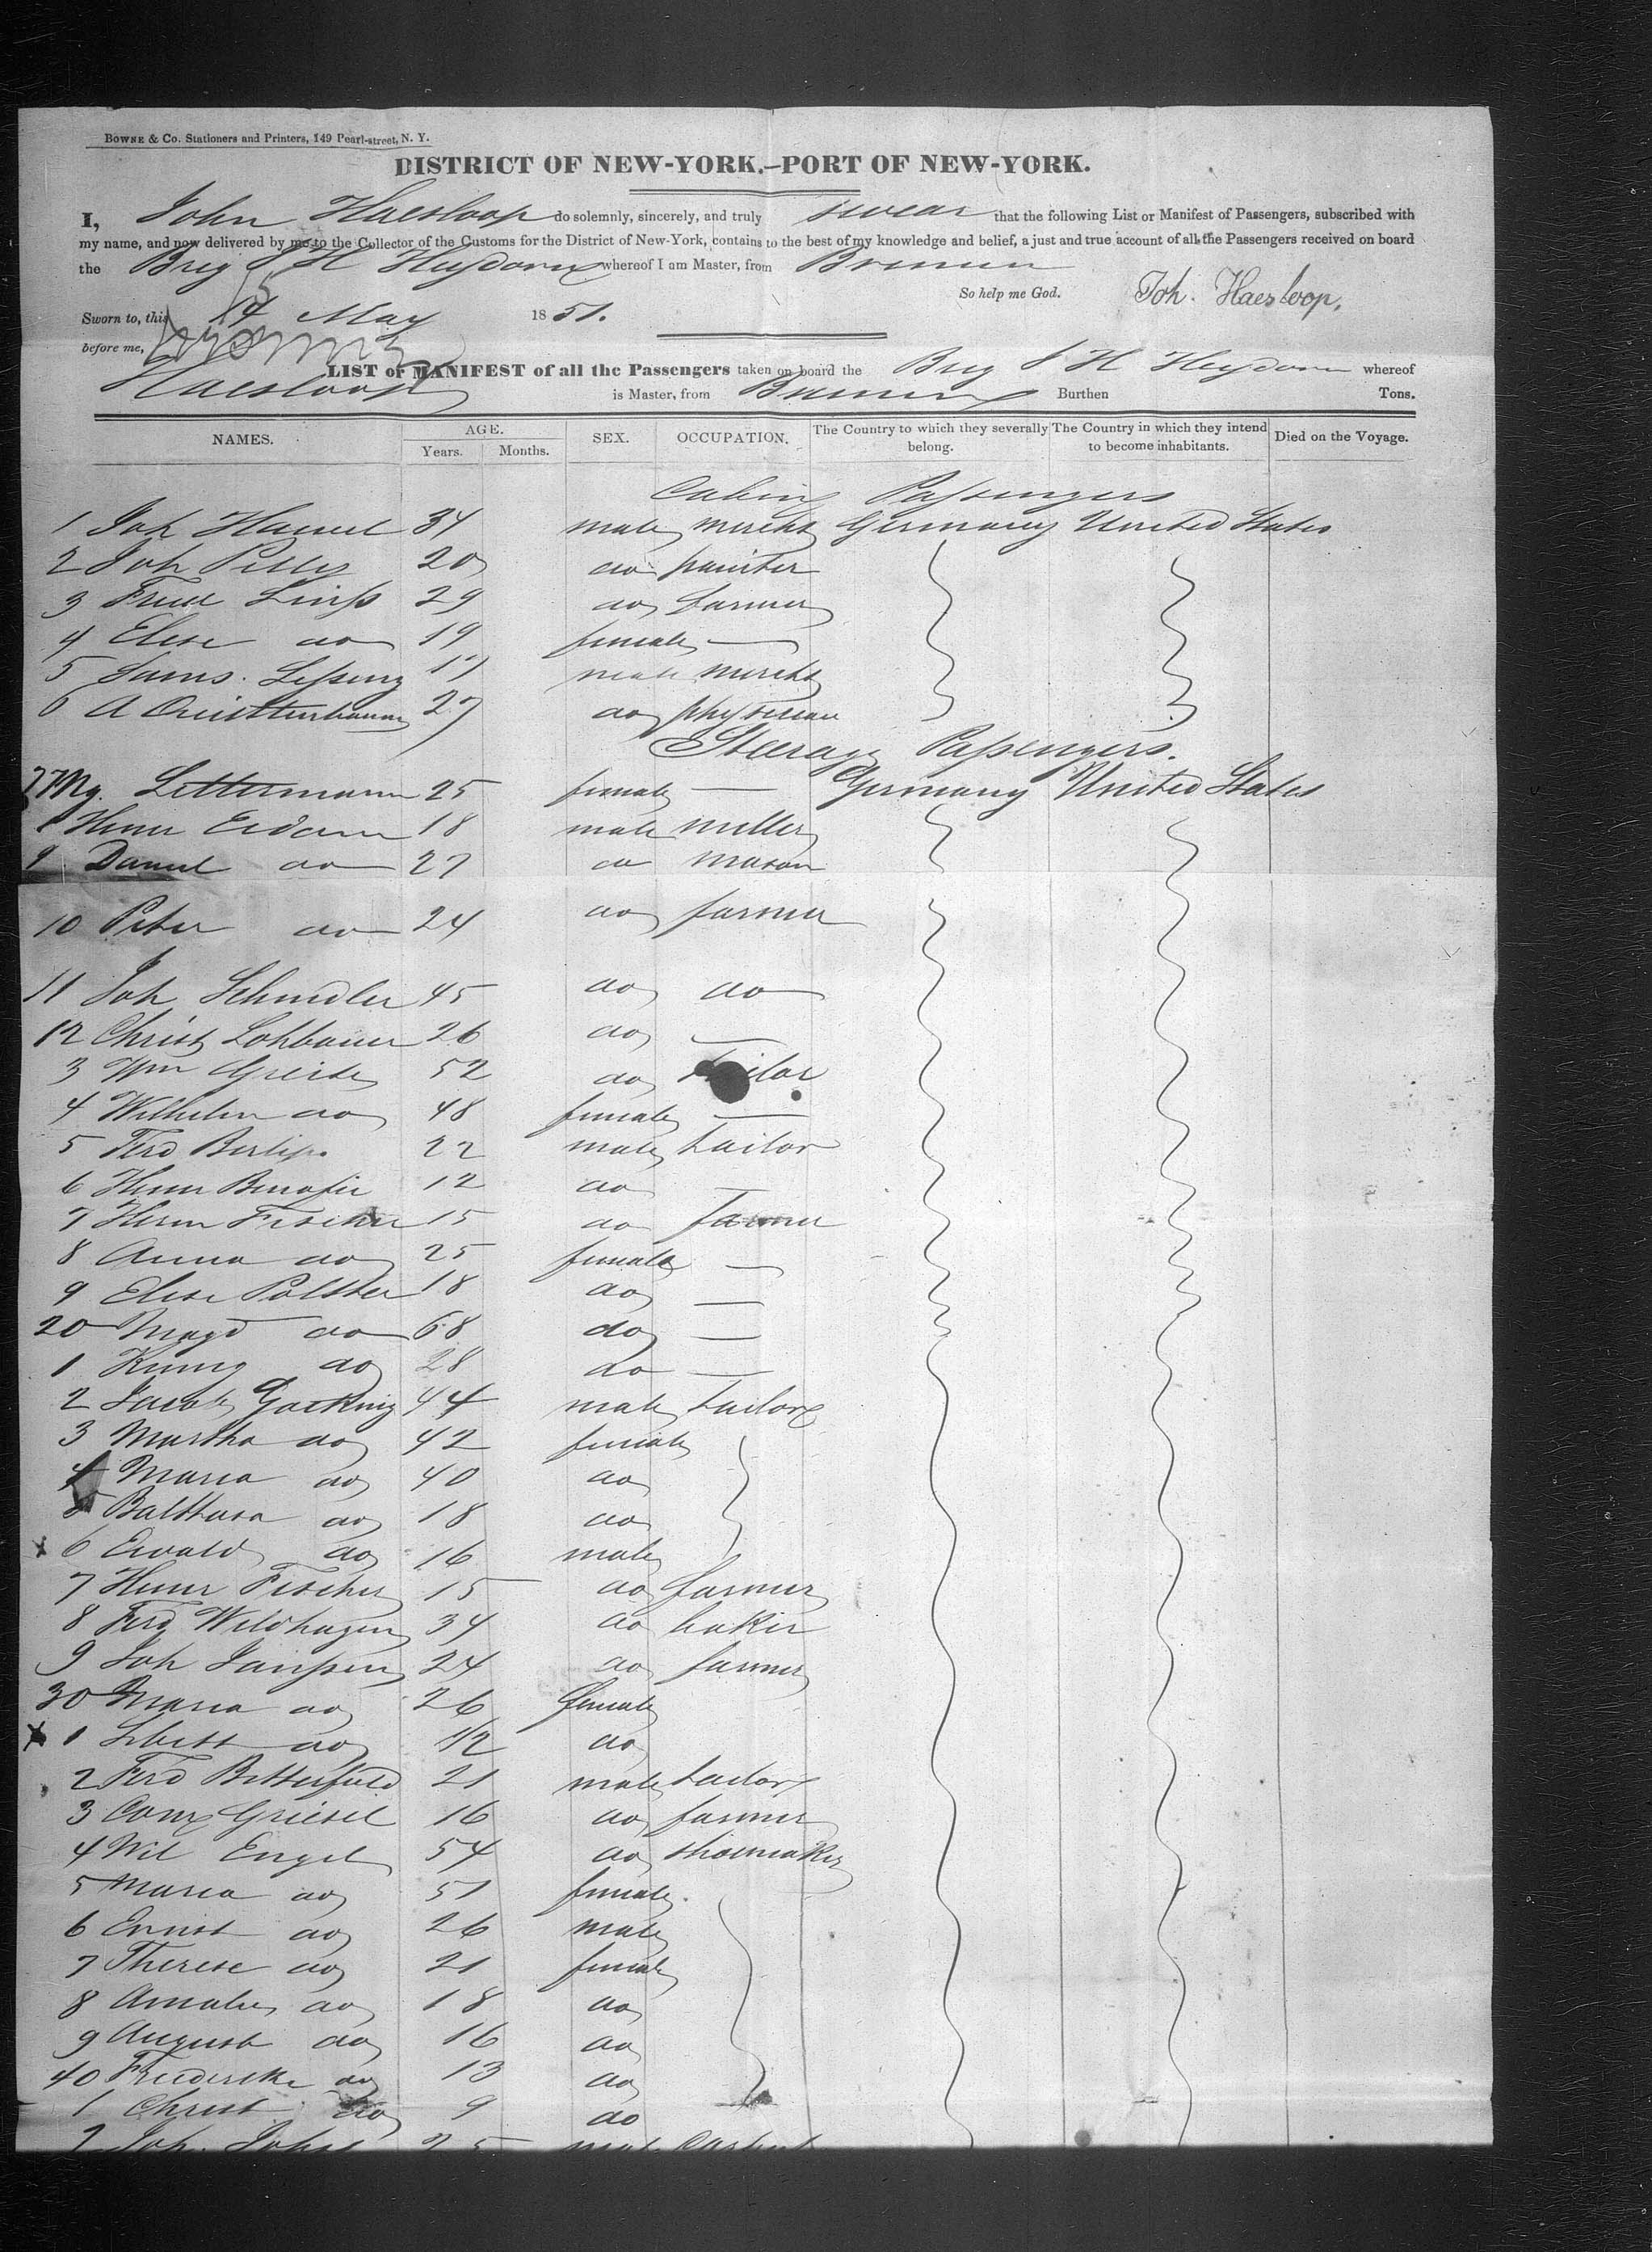 BOWNE & Co. Stationers and Printers, 149 Pearl-street, N. Y.
DISTRICT OF NEW-YORK.—PORT OF NEW-YORK.
I, John Haesloop do solemnly, sincerely, and truly swear that the following List or Manifest of Passengers, subscribed with
my name, and now delivered by me to the Collector of the Customs for the District of New-York, contains to the best of my knowledge and belief, a just and true account of all the Passengers received on board
the Brig J H Heydorn whereof I am Master, from Bremen
So help me God. Joh. Haesloop.
Sworn to, this May 1851.
before me,
LIST or MANIFEST of all the Passengers taken on board the Brig J H Heydorn whereof
Haesloop is Master, from Bremen Burthen Tons.
NAMES. AGE. Years. Months. SEX. OCCUPATION. The Country to which they severally belong. The Country in which they intend to become inhabitants. Died on the Voyage.
Cabin Passengers
1 Joh 34 male mercht Germany United States
2 Joh 20 do painter
3 29 do farmer
4 Elise do 19 female —
5 male mercht
6 A 27 do physician
Steerage Passengers.
7 Mg. Lettermann 25 female — Germany United States
Eidam 18 male miller
9 Daniel do 27 do mason
10 Peter do 24 do farmer
11 Joh Schindler 45 do do
12 Christ Lohbauer 26 do —
3 Wm 52 do Tailor
4 Wilhelm do 48 female —
5 Ferd 22 male tailor
6 12 do —
7 Herm Fischer 15 do farmer
8 Anna do 25 female —
9 Elise Polster 18 do —
20 Magd do 68 do —
1 do 28 do —
2 Jacob 44 male tailor
3 Martha do 42 female
4 Maria do 40 do
5 Balthasa do 18 do
6 Ewald do 16 male
7 Fischer 15 do farmer
8 Ferd Wildhagen 34 do baker
9 Joh Janssen 24 do farmer
30 Maria do 26 female
1 do 1/2 do
2 Ferd Bitterfield 21 male tailor
3 Griesel 16 do farmer
4 Wil Engel 54 do shoemaker
5 Maria do 51 female
6 Ernst do 26 male
7 Therese do 21 female
8 Amalie do 18 do
9 August do 16 do
40 Friederike do 13 do
1 Christ do 9 do
2 Joh.